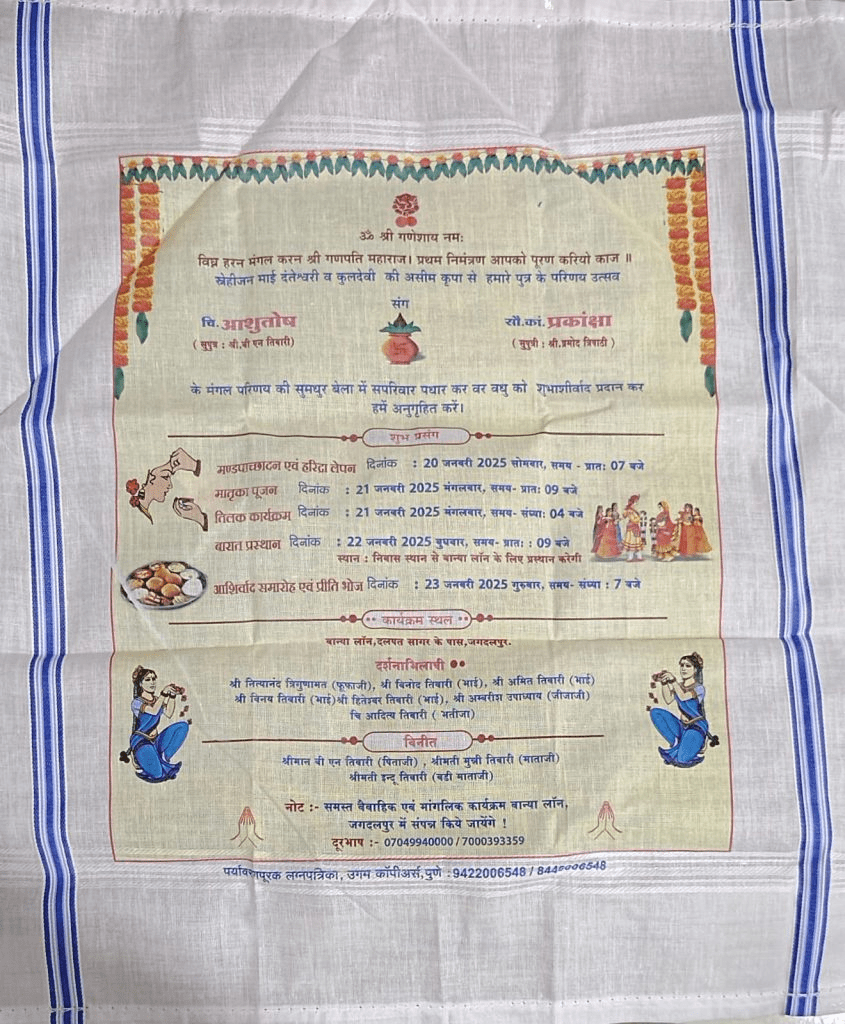 ॐ श्री गणेशाय नमः
विघ्न हरन मंगल करन श्री गणपति महाराज। प्रथम निमंत्रण आपको पूरण करियो काज ॥
स्नेहीजन माई दंतेश्वरी व कुलदेवी की असीम कृपा से हमारे पुत्र के परिणय उत्सव
संग
चि. आशुतोष सौ.कां. प्रकांक्षा
( सुपुत्र : श्री.बी एन तिवारी) ( सुपुत्री : श्री.प्रमोद त्रिपाठी )
के मंगल परिणय की सुमधुर बेला में सपरिवार पधार कर वर वधु को शुभाशीर्वाद प्रदान कर
हमें अनुगृहित करें।
शुभ प्रसंग
मण्डपाच्छादन एवं हरिद्रा लेपन दिनांक : 20 जनवरी 2025 सोमवार, समय - प्रातः 07 बजे
मातृका पूजन दिनांक : 21 जनवरी 2025 मंगलवार, समय- प्रातः 09 बजे
तिलक कार्यक्रम दिनांक : 21 जनवरी 2025 मंगलवार, समय- संध्याः 04 बजे
बारात प्रस्थान दिनांक : 22 जनवरी 2025 बुधवार, समय- प्रातः : 09 बजे
स्थान : निवास स्थान से बान्या लॉन के लिए प्रस्थान करेगी
आशिर्वाद समारोह एवं प्रीति भोज दिनांक : 23 जनवरी 2025 गुरुवार, समय- संध्या : 7 बजे
कार्यक्रम स्थल
बान्या लॉन,दलपत सागर के पास,जगदलपुर.
दर्शनाभिलाषी
श्री नित्यानंद त्रिगुणामत (फूफाजी), श्री विनोद तिवारी (भाई), श्री अमित तिवारी (भाई)
श्री विनय तिवारी (भाई)श्री हितेश्वर तिवारी (भाई), श्री अम्बरीश उपाध्याय (जीजाजी)
चि आदित्य तिवारी ( भतीजा)
विनीत
श्रीमान बी एन तिवारी (पिताजी) , श्रीमती मुन्नी तिवारी (माताजी)
श्रीमती इन्दू तिवारी (बडी माताजी)
नोट :- समस्त वैवाहिक एवं मांगलिक कार्यक्रम बान्या लॉन,
जगदलपुर में संपन्न किये जायेंगे !
दूरभाष :- 07049940000 / 7000393359
पर्यावरणपूरक लग्नपत्रिका, उगम कॉपीअर्स,पुणे :9422006548 / 8446006548